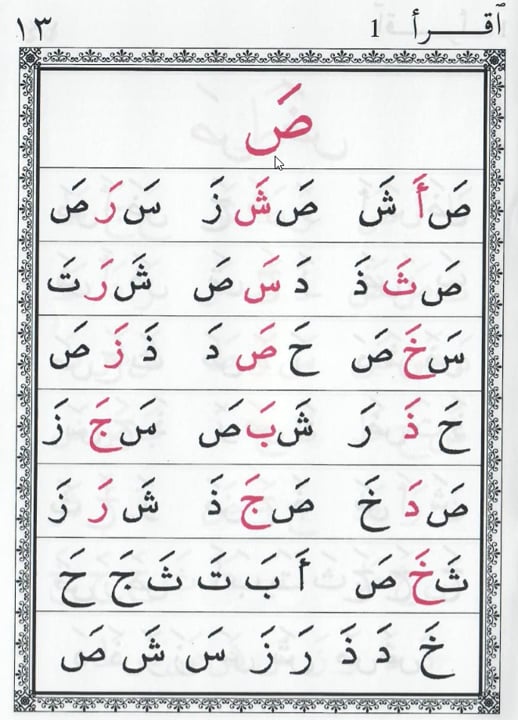 ٱقـــرأ 1 ١٣
صَ
صَ أَ شَ صَ شَ زَ سَ رَ صَ
صَ ثَ ذَ دَ سَ صَ شَ رَ تَ
سَ خَ صَ حَ صَ دَ ذَ زَ صَ
حَ ذَ رَ شَ بَ صَ سَ جَ زَ
صَ دَ خَ صَ جَ ذَ شَ رَ زَ
ثَ خَ صَ أَ بَ تَ ثَ جَ حَ
خَ دَ ذَ رَ زَ سَ شَ صَ